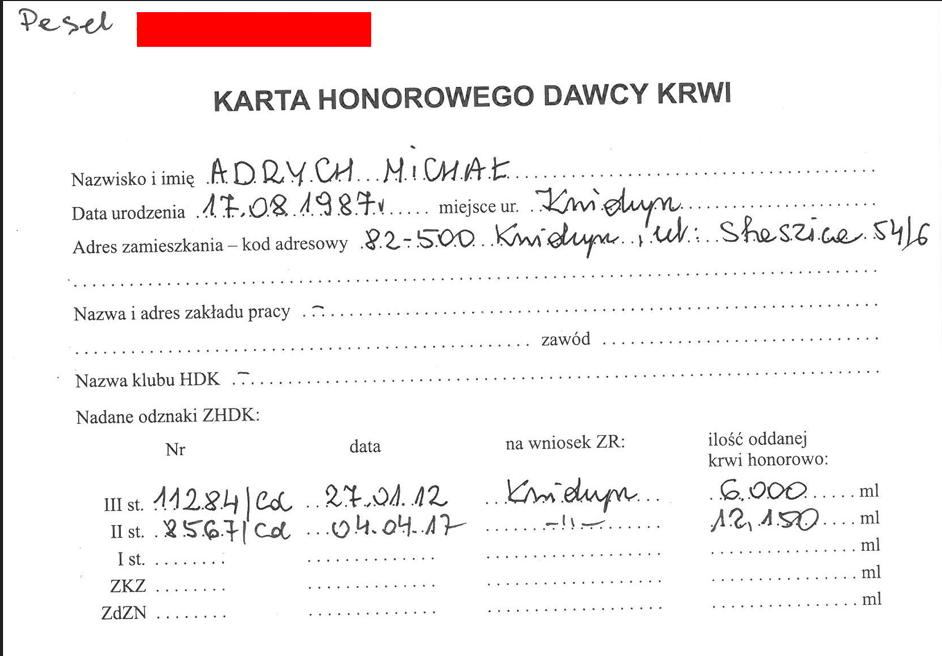 Pesel
KARTA HONOROWEGO DAWCY KRWI
Nazwisko i imię ADRYCH MICHAŁ
Data urodzenia 17.08.1987r miejsce ur. Kwidzyn
Adres zamieszkania – kod adresowy 82-500 Kwidzyn, ul: Staszica 54/6
Nazwa i adres zakładu pracy –
zawód
Nazwa klubu HDK –
Nadane odznaki ZHDK:
Nr data na wniosek ZR: ilość oddanej
krwi honorowo:
III st. 11284/Cd 27.01.12 Kwidzyn 6.000 ml
II st. 8567/Cd 04.04.17 -''- 12,150 ml
I st. ml
ZKZ ml
ZdZN ml